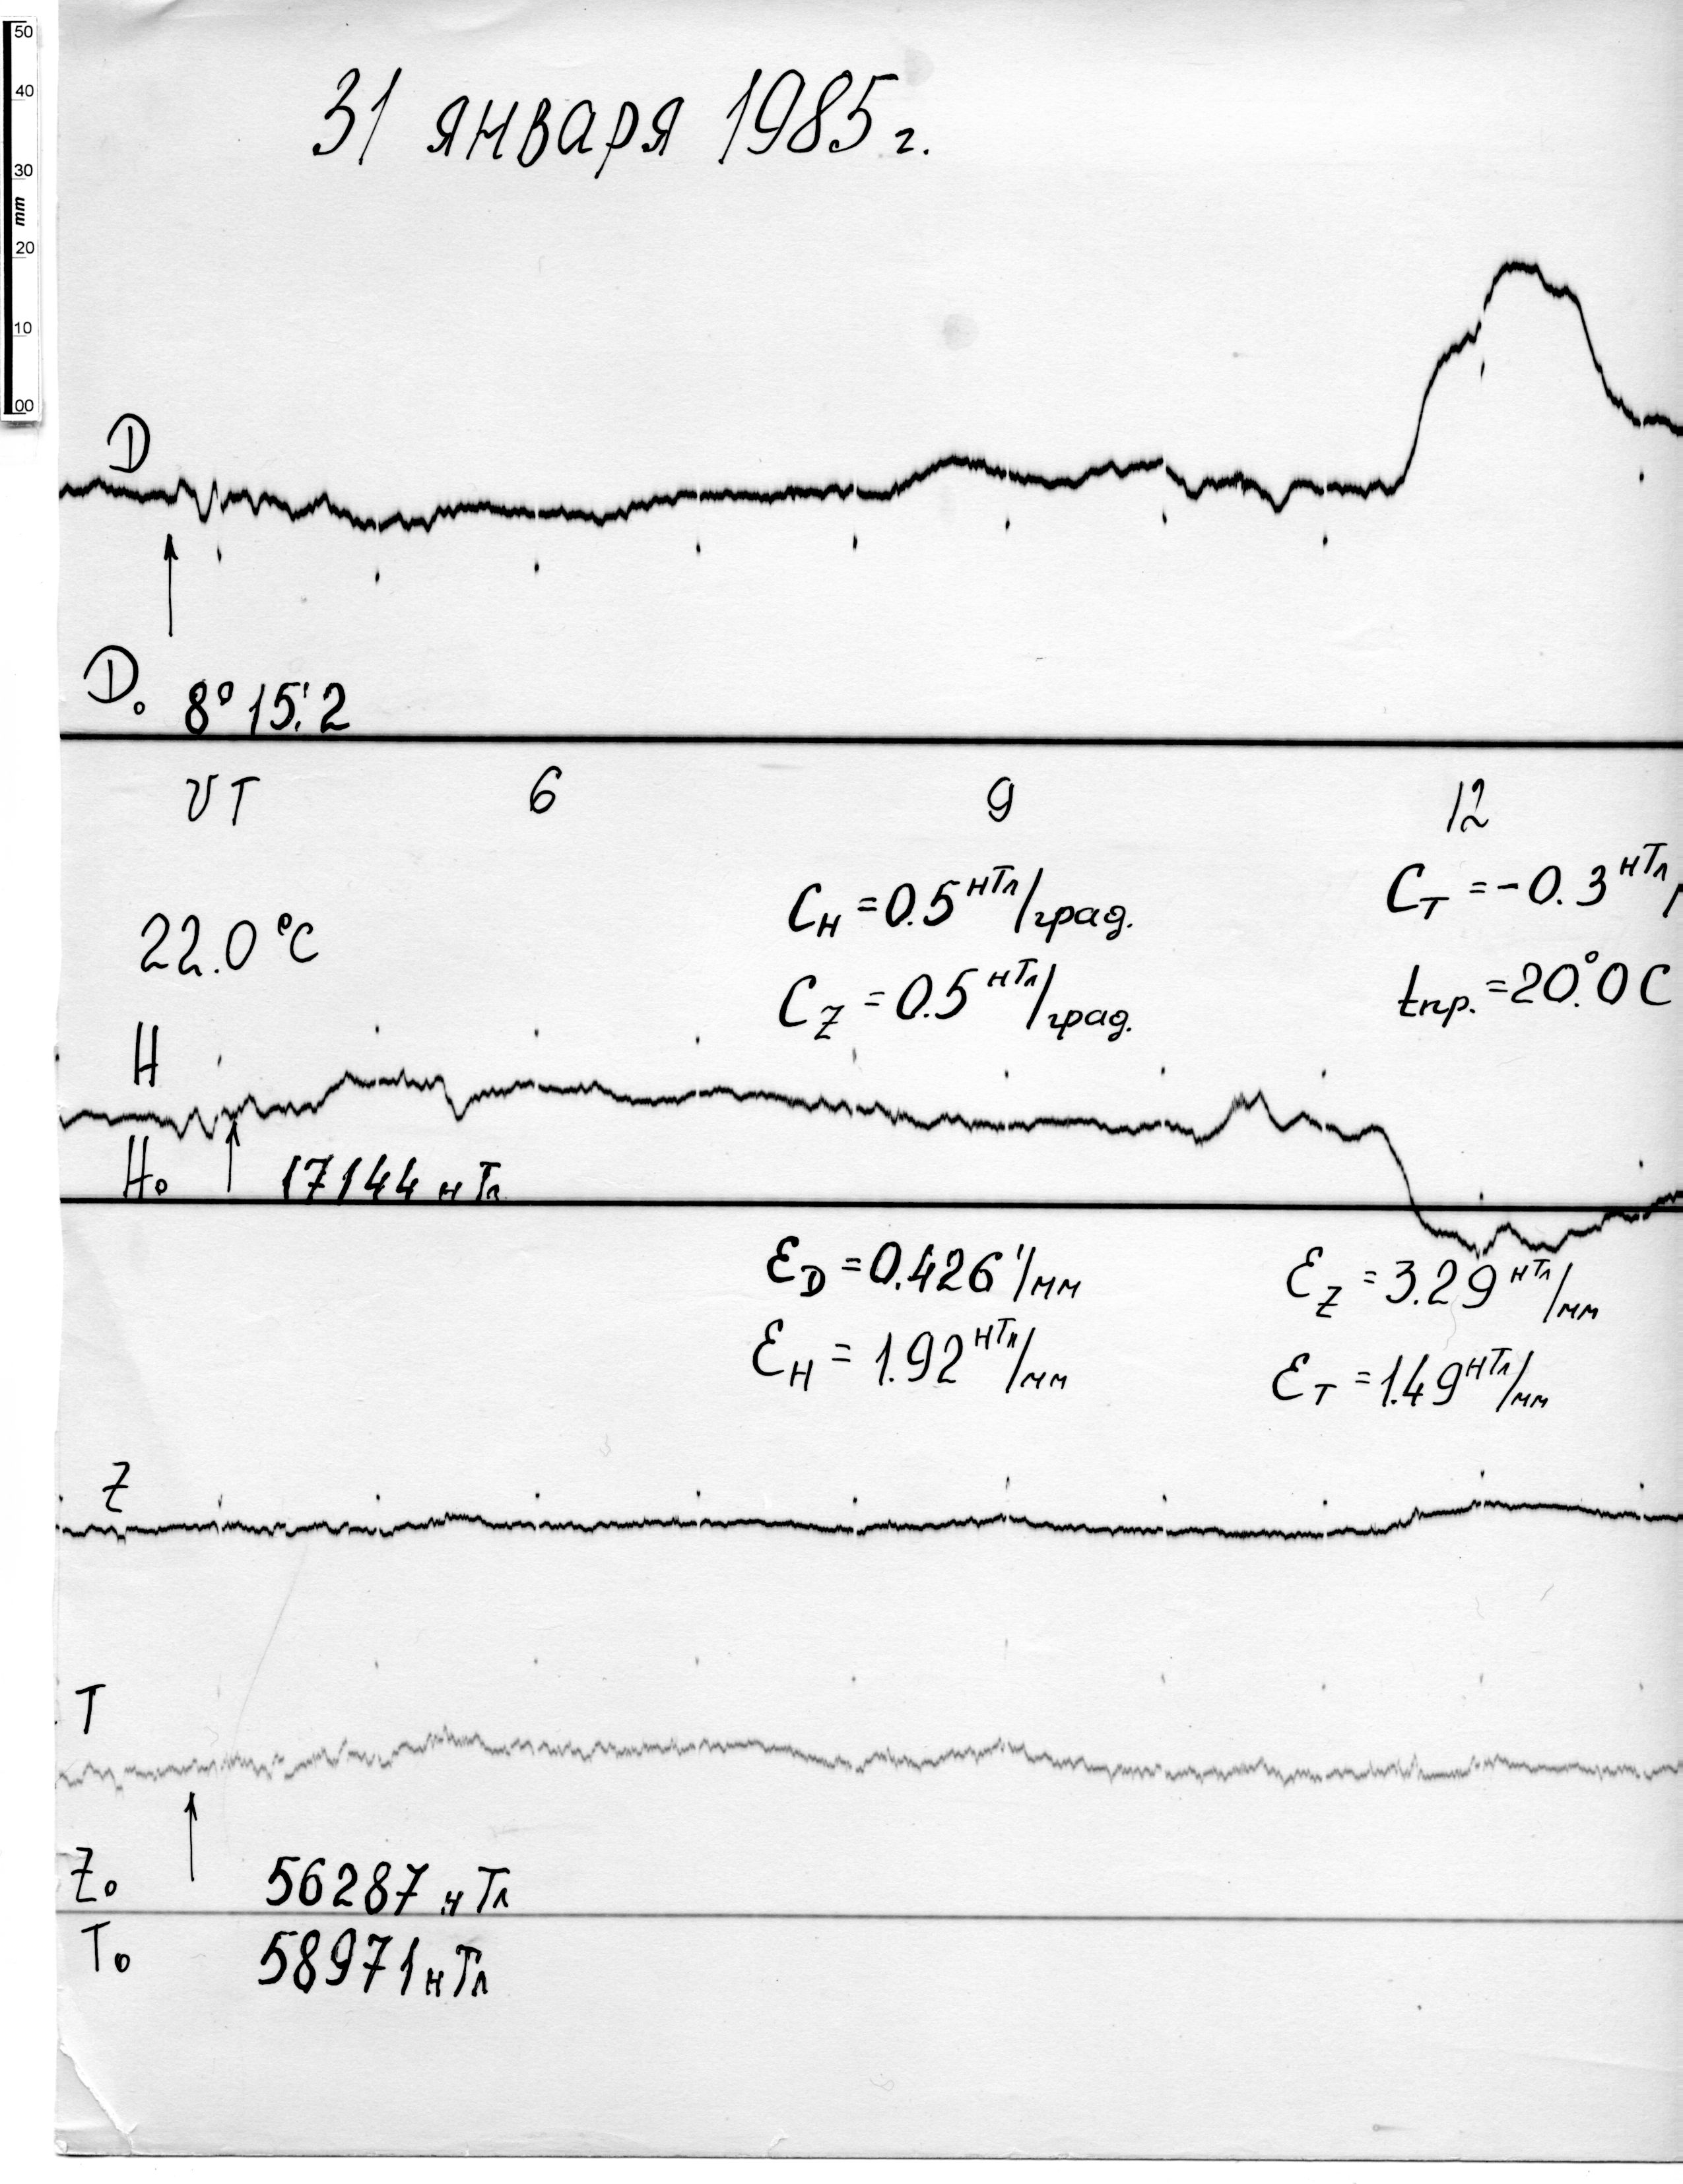 50
40
30
mm
20
10
00
31 января 1985 г.
D
D₀ 8° 15.'2
UT 6 9 12
C_H = 0.5 нТл/град.
C_T = -0.3 нТл/
22.0 °C
C_Z = 0.5 нТл/град.
t пр. = 20.°0 C
H
H₀ 17144 нТл
ε_D = 0.426 '/мм
ε_Z = 3.29 нТл/мм
ε_H = 1.92 нТл/мм
ε_T = 1.49 нТл/мм
Z
T
Z₀ 56287 нТл
T₀ 58971 нТл